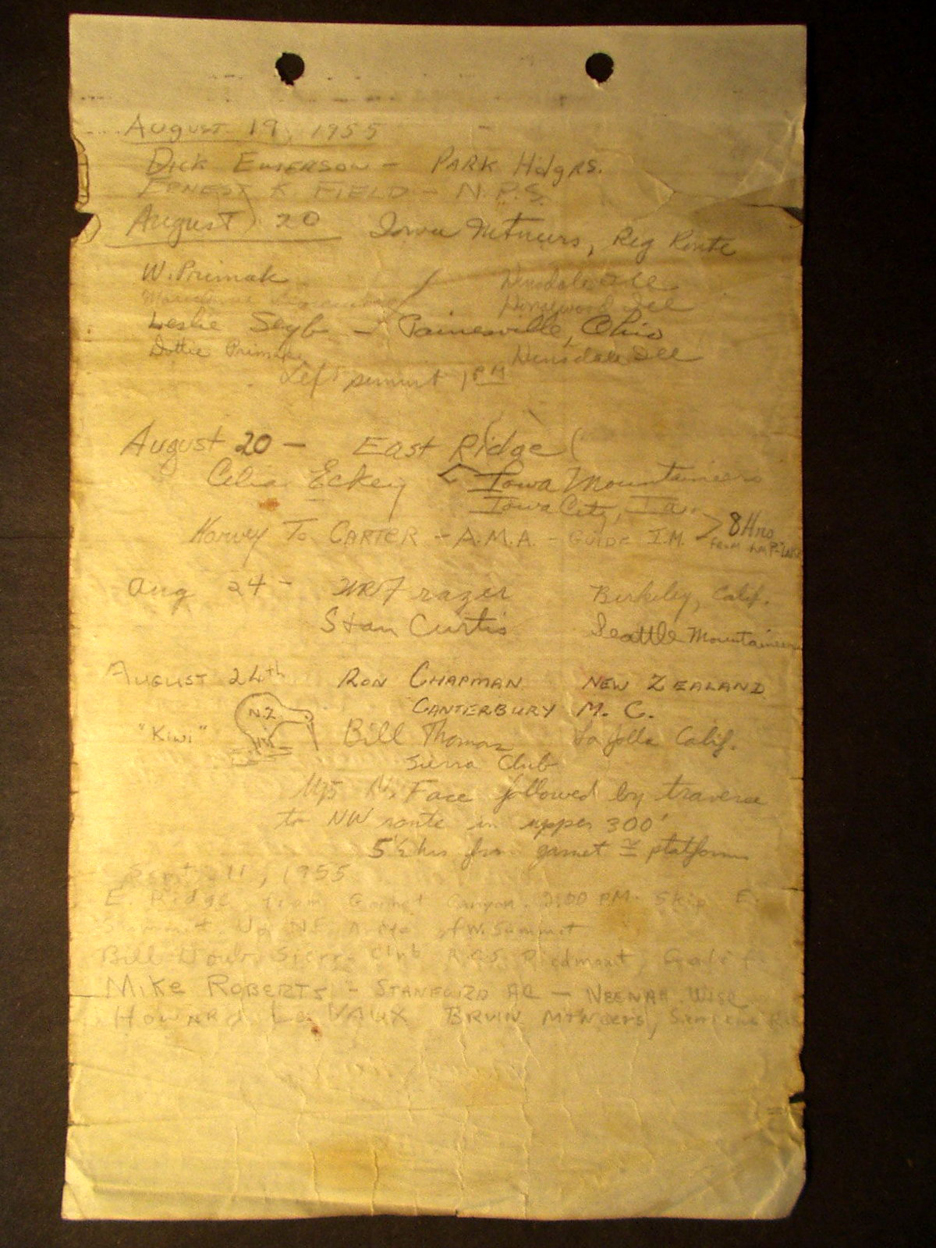 August 19, 1955
DICK EMERSON - PARK Hdqrs.
ERNEST K. FIELD - N.P.S.
August 20 Iowa Mtneers, Reg Route
W. Primak Hinsdale Ill
Ill
Leslie Seyb - Painesville, Ohio
Dottie Primak Hinsdale Ill
Left summit 1 PM
August 20 - East Ridge
Eckey < Iowa Mountaineers
Iowa City, Ia.
Harvey T. CARTER - A.M.A. - GUIDE I.M. > 8 Hrs
FROM
Aug 24 - Frazer Berkeley, Calif.
Stan Curtis Seattle Mountaineers
AUGUST 24th RON CHAPMAN NEW ZEALAND
CANTERBURY M. C.
N.Z.
"KIWI" Bill Thomas La Jolla Calif.
Sierra Club
Up N. Face followed by traverse
to NW route in upper 300'
5½ hrs from garnet platform
Sept. 11, 1955
E. Ridge from Garnet Canyon. 2:00 PM. Skip E.
Summit. Up
Bill Sierra Club R.C.S. Piedmont, Calif
MIKE ROBERTS - AC - NEENAH, WISC
HOWARD LeVAUX BRUIN